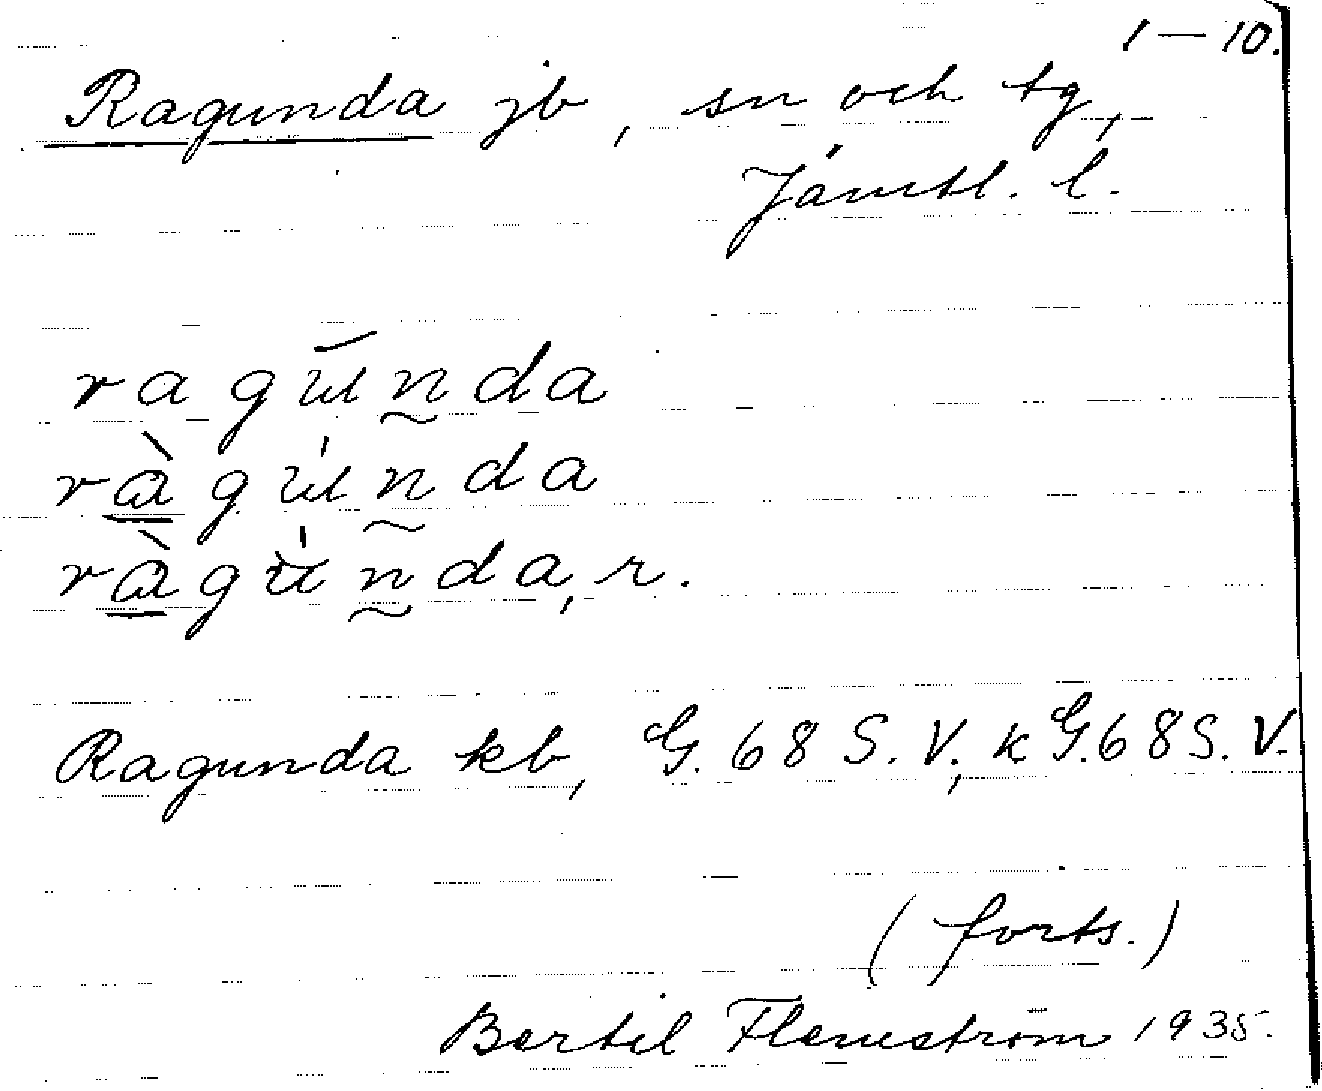 1 — 10.
Ragunda jb, sn och tg,
Jämtl. l.
ragúnda
ràgúnda
ràgúnda, r.
Ragunda kb, G. 68 S. V.; k G. 68 S. V.
(forts.)
Bertil Flemström 1935.